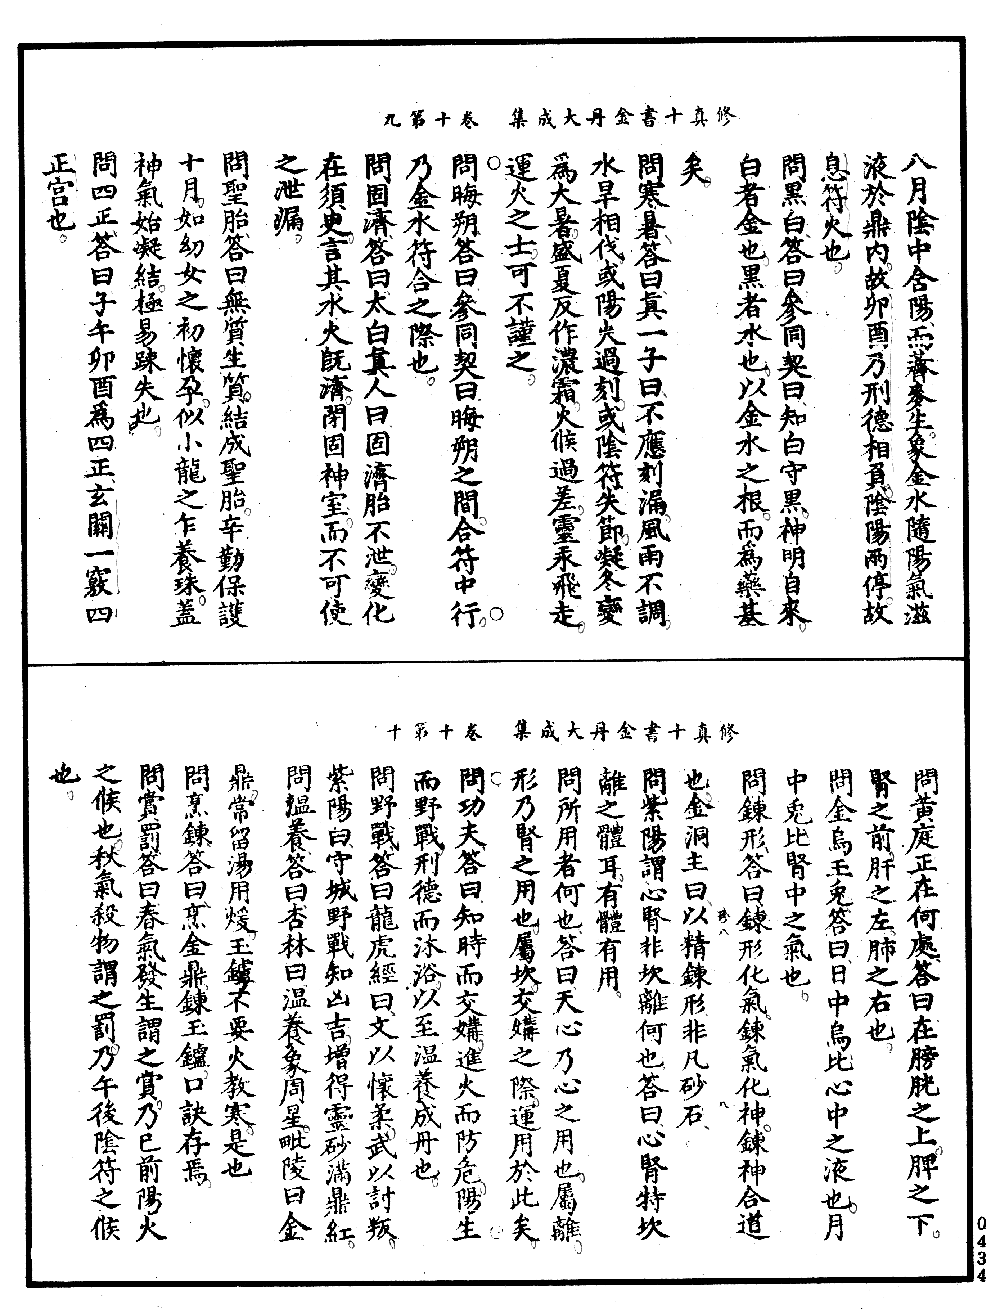 修真十書金丹大成集　卷十第九
八月陰中含陽而薺麥生象金水隨陽氣滋
液於鼎內故卯酉乃刑德相負陰陽兩停故
息符火也
問黑白答曰參同契曰知白守黑神明自來
白者金也黑者水也以金水之根而為藥基
矣
問寒暑答曰真一子曰不應刻漏風雨不調
水旱相伐或陽火過刻或陰符失節凝冬變
為大暑盛夏反作濃霜火候過差靈汞飛走
運火之士可不謹之
問晦朔答曰參同契曰晦朔之間合符中行
乃金水符合之際也
問固濟答曰太白真人曰固濟胎不泄變化
在須臾言其水火既濟閉固神室而不可使
之泄漏
問聖胎答曰無質生質結成聖胎辛勤保護
十月如幼女之初懷孕似小龍之乍養珠蓋
神氣始凝結極易疎失也
問四正答曰子午卯酉為四正玄關一竅四
正宮也
修真十書金丹大成集　卷十第十
問黃庭正在何處答曰在膀胱之上脾之下
腎之前肝之左肺之右也
問金烏玉兔答曰日中烏比心中之液也月
中兔比腎中之氣也
問鍊形答曰鍊形化氣鍊氣化神鍊神合道
也金洞主曰以精鍊形非凡砂石
問紫陽謂心腎非坎離何也答曰心腎特坎
離之體耳有體有用
問所用者何也答曰天心乃心之用也屬離
形乃腎之用也屬坎交媾之際運用於此矣
問功夫答曰知時而交媾進火而防危陽生
而野戰刑德而沐浴以至溫養成丹也
問野戰答曰龍虎經曰文以懷柔武以討叛
紫陽曰守城野戰知凶吉增得靈砂滿鼎紅
問溫養答曰杏林曰溫養象周星毗陵曰金
鼎常留湯用煖玉鑪不要火教寒是也
問烹鍊答曰烹金鼎鍊玉鑪口訣存焉
問賞罰答曰春氣發生謂之賞乃巳前陽火
之候也秋氣殺物謂之罰乃午後陰符之候
也
0434